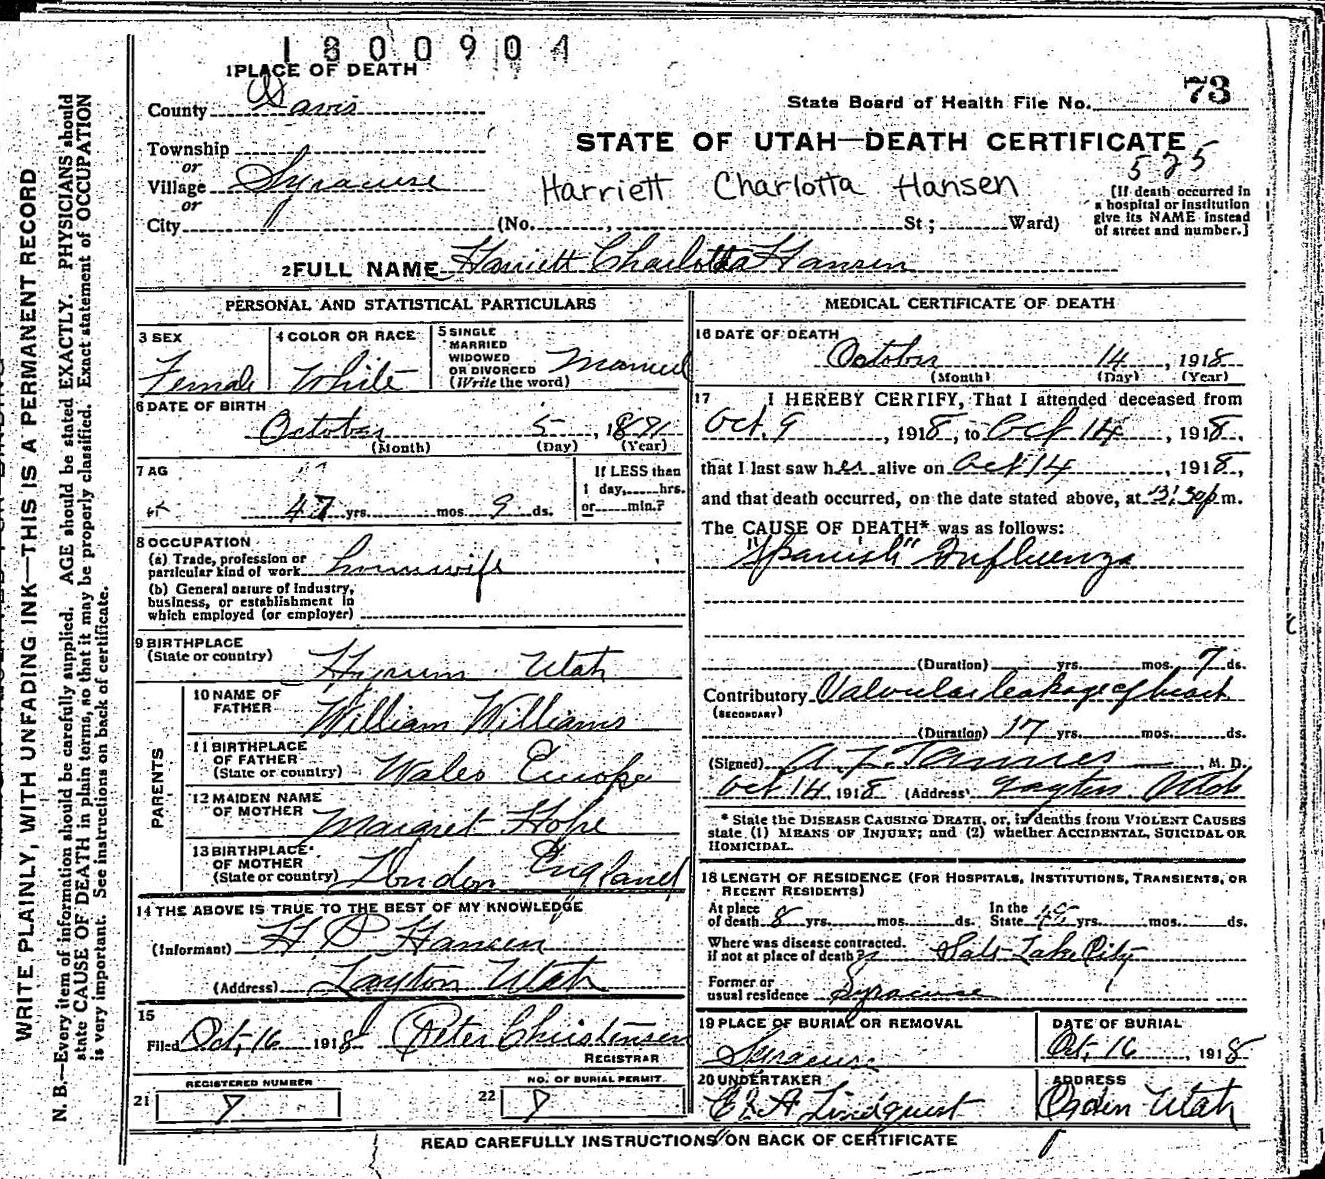 1300904
1 PLACE OF DEATH
County Davis
State Board of Health File No. 73
Township
or
Village Syracuse
or
City
STATE OF UTAH—DEATH CERTIFICATE
525
Harriett Charlotta Hansen
(No. , St; Ward)
[If death occurred in
a hospital or institution
give its NAME instead
of street and number.]
2 FULL NAME Harriett Charlotta Hansen
PERSONAL AND STATISTICAL PARTICULARS
3 SEX
Female
4 COLOR OR RACE
White
5 SINGLE
MARRIED
WIDOWED
OR DIVORCED
(Write the word)
Married
6 DATE OF BIRTH
October 5, 1871
(Month) (Day) (Year)
7 AG
47 yrs. mos. 9 ds.
If LESS than
1 day, hrs.
or min.?
8 OCCUPATION
(a) Trade, profession or
particular kind of work housewife
(b) General nature of industry,
business, or establishment in
which employed (or employer)
9 BIRTHPLACE
(State or country) Hyrum Utah
PARENTS
10 NAME OF
FATHER William Williams
11 BIRTHPLACE
OF FATHER
(State or country) Wales Europe
12 MAIDEN NAME
OF MOTHER Margret Hope
13 BIRTHPLACE
OF MOTHER
(State or country) London England
14 THE ABOVE IS TRUE TO THE BEST OF MY KNOWLEDGE
(Informant) H P Hansen
(Address) Layton Utah
15
Filed Oct, 16 1918 Peter Christensen
REGISTRAR
REGISTERED NUMBER
21 7
NO. OF BURIAL PERMIT
22 7
MEDICAL CERTIFICATE OF DEATH
16 DATE OF DEATH
October 14, 1918
(Month) (Day) (Year)
17 I HEREBY CERTIFY, That I attended deceased from
Oct. 9, 1918, to Oct 14, 1918,
that I last saw her alive on Oct 14, 1918,
and that death occurred, on the date stated above, at 3:30 p.m.
The CAUSE OF DEATH* was as follows:
"Spanish" Influenza
(Duration) yrs. mos. 7 ds.
Contributory Valvular leakage of heart
(SECONDARY)
(Duration) 17 yrs. mos. ds.
(Signed) A. Z. Tanner, M. D.
Oct 14, 1918 (Address) Layton Utah
* State the DISEASE CAUSING DEATH, or, in deaths from VIOLENT CAUSES
state (1) MEANS OF INJURY; and (2) whether ACCIDENTAL, SUICIDAL OR
HOMICIDAL.
18 LENGTH OF RESIDENCE (FOR HOSPITALS, INSTITUTIONS, TRANSIENTS, OR
RECENT RESIDENTS)
At place
of death 8 yrs. mos. ds.
In the
State yrs. mos. ds.
Where was disease contracted,
if not at place of death? Salt Lake City
Former or
usual residence Syracuse
19 PLACE OF BURIAL OR REMOVAL
Syracuse
DATE OF BURIAL
Oct, 16, 1918
20 UNDERTAKER
E. A Lindquist
ADDRESS
Ogden Utah
READ CAREFULLY INSTRUCTIONS ON BACK OF CERTIFICATE
WRITE PLAINLY, WITH UNFADING INK—THIS IS A PERMANENT RECORD
N. B.—Every item of information should be carefully supplied. AGE should be stated EXACTLY. PHYSICIANS should
state CAUSE OF DEATH in plain terms, so that it may be properly classified. Exact statement of OCCUPATION
is very important. See instructions on back of certificate.